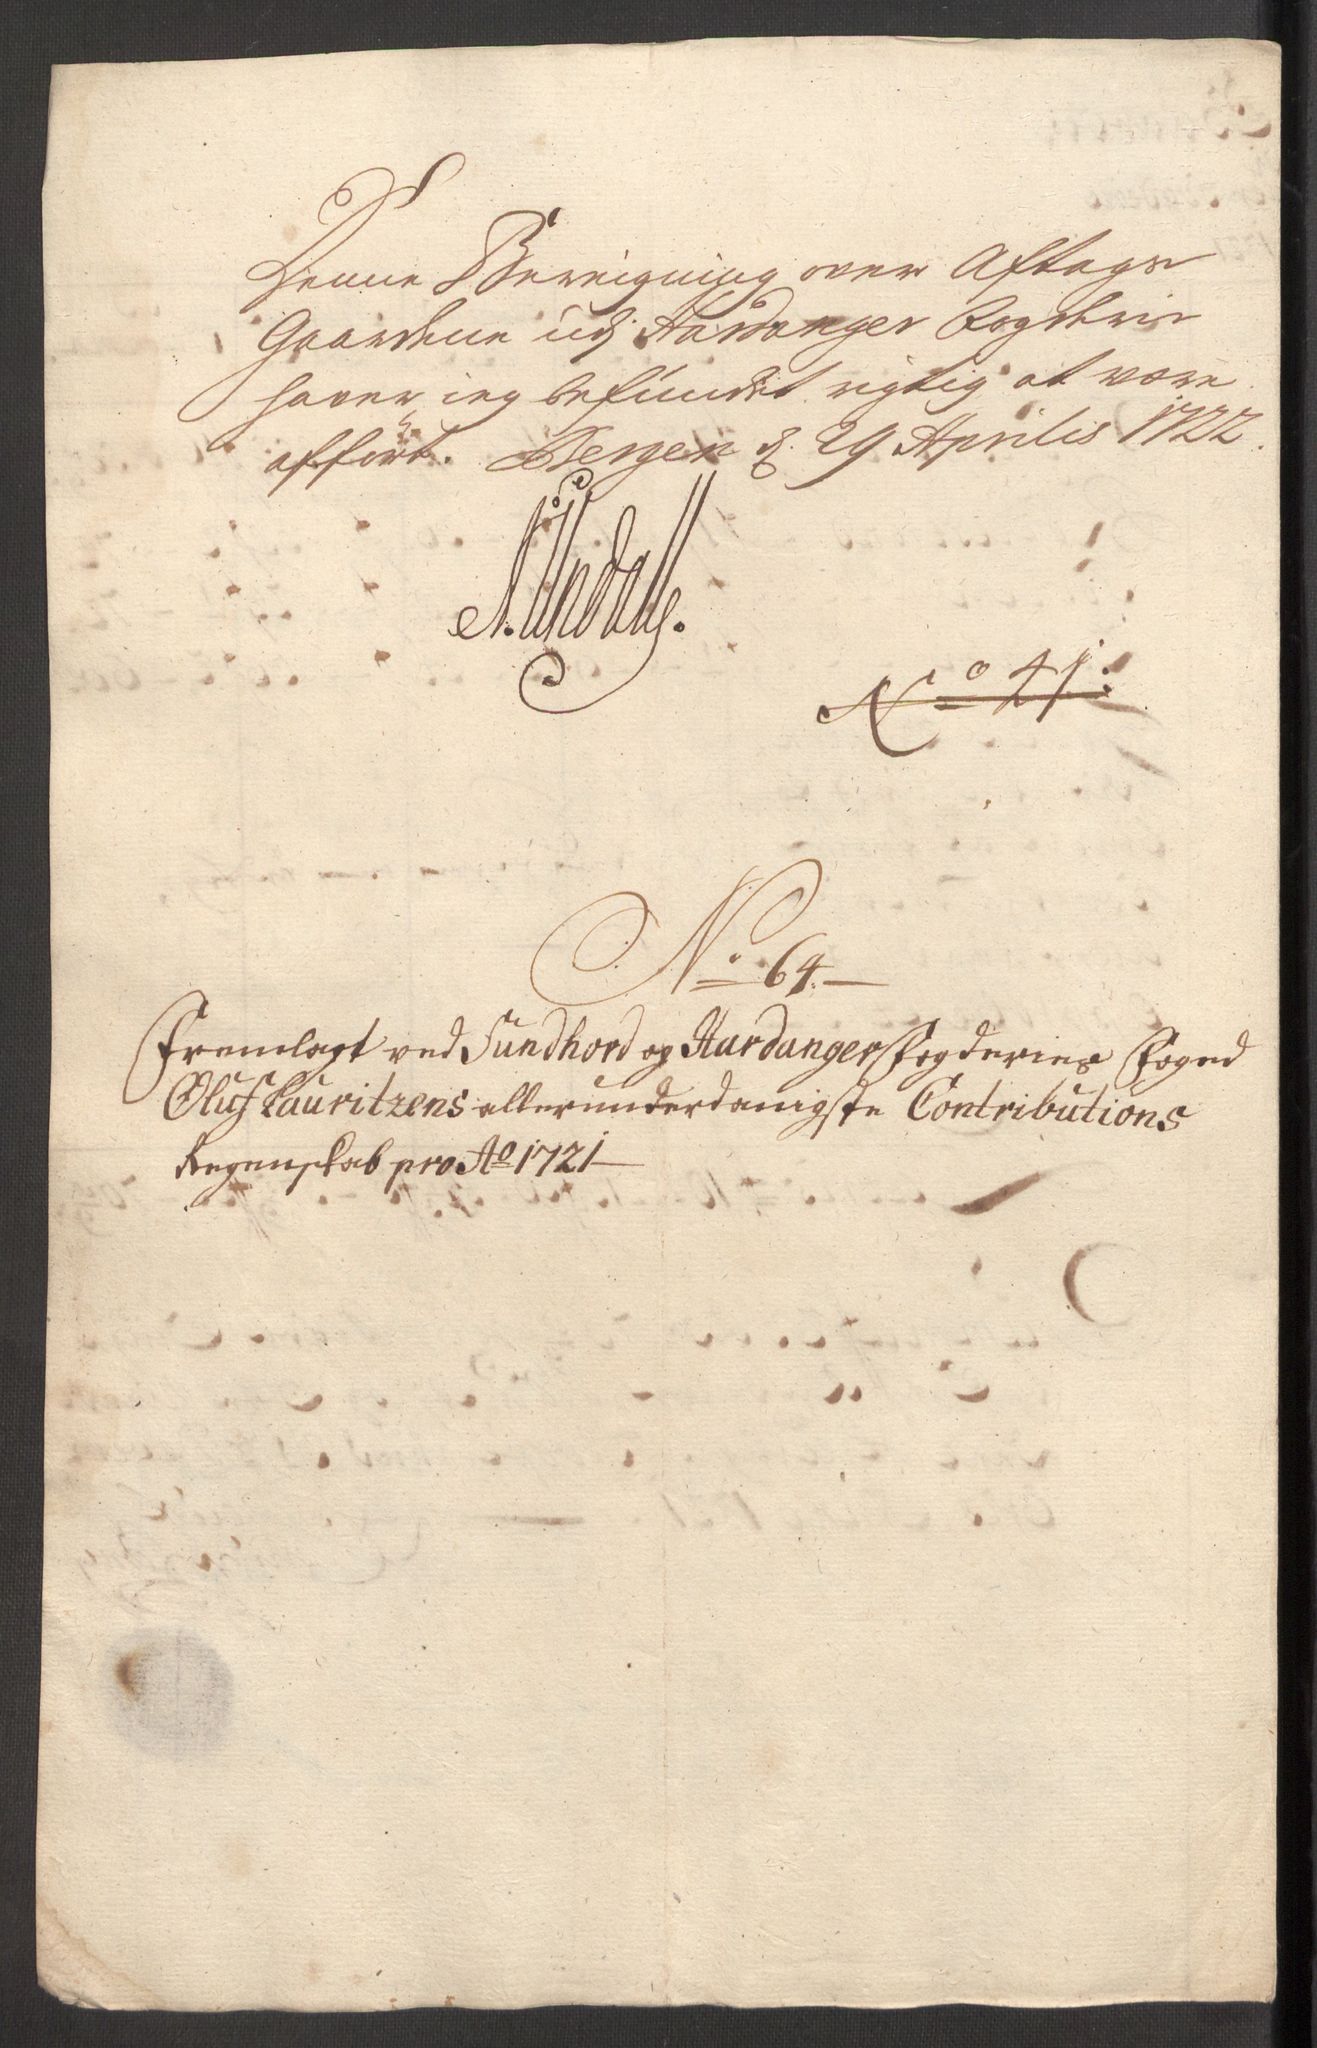 Denne Bereigning over Aftags
Gaardene udj Hardanger Fogderie
haver ieg befundet rigtig at være
affört. Bergen d. 29 Aprilis 1722.
No 41:
No. 64.
Fremlagt ved Sundhord og Hardanger Fogderies Foged
Oluf Lauritzens allerunderdanigste Contributions
Regenskab pro Ao 1721